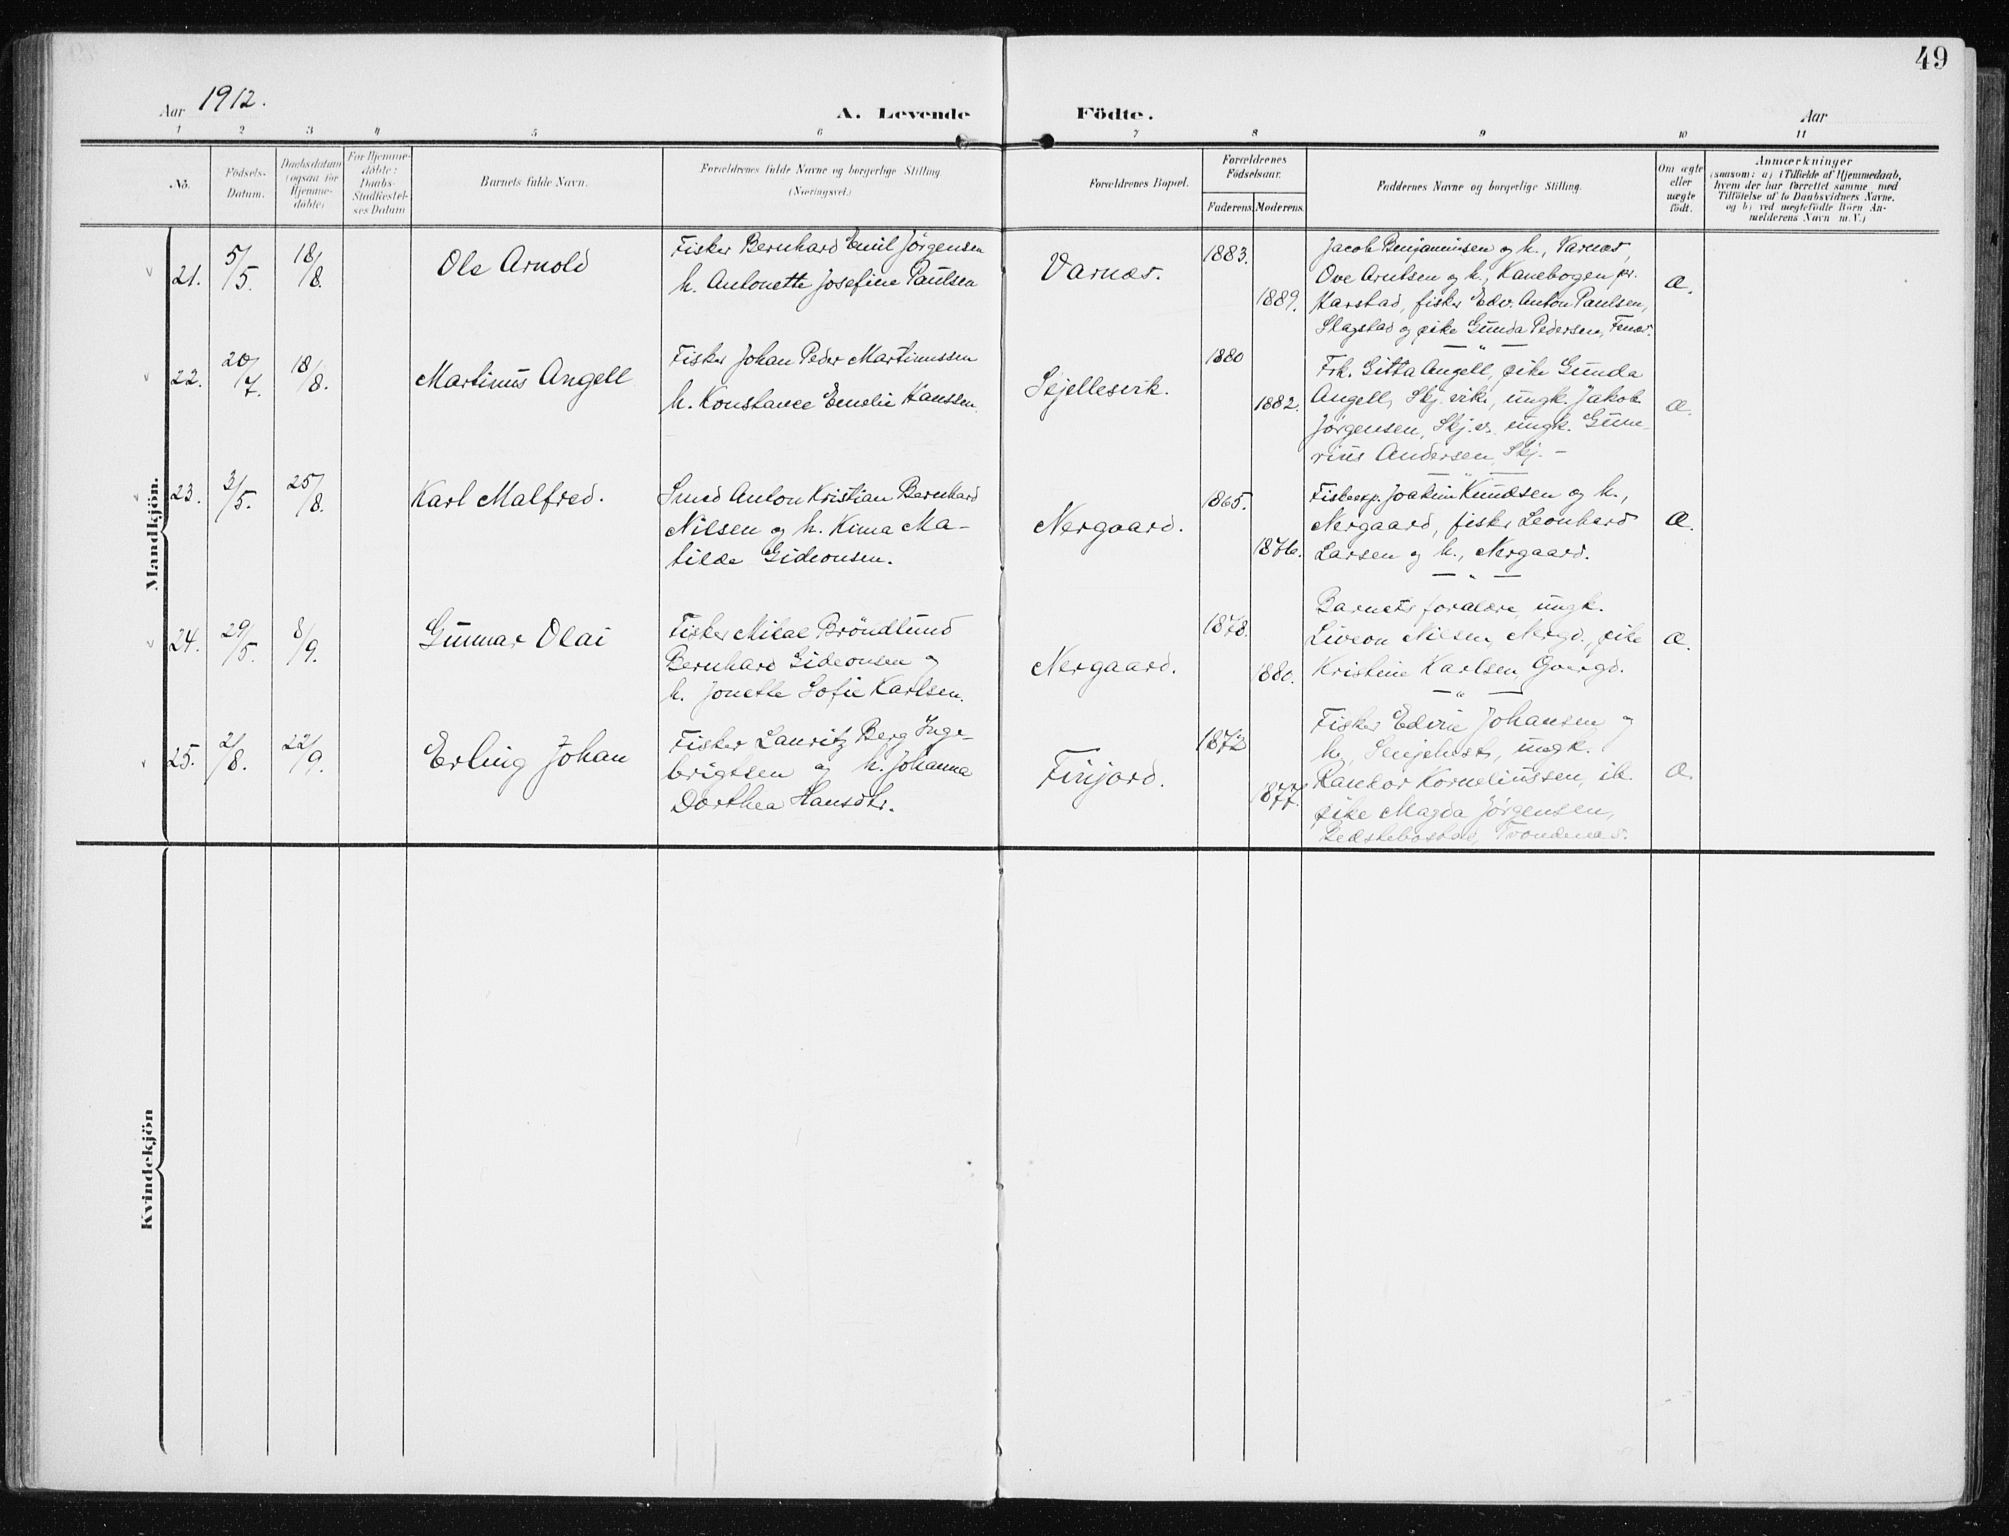 49
Aar 1912.
A. Levende Födte.
Aar
1 2 3 4 5 6 7 8 9 10 11
No.
Födsels-
Datum.
Daabsdatum
(ogsaa for
Hjemme-
döbte)
For Hjemme-
döbte:
Daabs-
Stadfæstel-
ses Datum
Barnets fulde Navn.
Forældrenes fulde Navne og borgerlige Stilling
(Næringsvei.)
Forældrenes Bopæl.
Forældrenes
Födselsaar.
Faderens. Moderens.
Faddernes Navne og borgerlige Stilling.
Om ægte
eller
uægte
födt.
Anmærkninger
(saasom: a) i Tilfælde af Hjemmedaab,
hvem der har forrettet samme med
Tilföielse af to Daabsvidners Navne.
og b) ved uægtefödte Börn An-
melderens Navn m. V.)
Mandkjön.
21.
5/5
18/8.
Ole Arnold
Fisker Bernhard Emil Jörgensen
h. Antonette Josefine Paulsen
Varnæs.
1883.
1889.
Jacob Benjaminsen og h., Varnæs,
Ove Arntsen og h., Kanebogen pr.
Harstad, fisker Edv. Anton Paulsen,
Slagstad og pike Gunda Pedersen,
æ.
22.
20/7.
18/8.
Martinus Angell
Fisker Johan Peder Martinussen
h. Konstance Emelie Hanssen.
Skjellesvik.
1880
1882.
Frk. Gitta Angell, pike Gunda
Angell, Skj.vik, ungk. Jakob
Jørgensen, Skj.v. ungk. Gune-
rius Andersen, Skj. –
æ.
23.
3/5.
25/8.
Karl Malfred.
Smed Anton Kristian Bernhard
Nilsen og h. Kima Ma-
tilde Gideonsen.
Nergaard.
1865.
1876.
Fiskeexp. Joakim Knudsen og h.,
Nergaard, fisker Leonhard
Larsen og h., Nergaard.
æ.
24.
29/5.
8/9.
Gunnar Olai
Fisker Mikal Bröndlund
Bernhard Gideonsen og
h. Jonette Sofie Karlsen.
Nergaard.
1878.
1880.
Barnets forældre, ungk.
Nilsen, Nergd., pike
Kristine Karlsen,
æ.
25.
2/8.
22/9.
Erling Johan
Fisker Lauritz Berg Inge-
brigtsen og h. Johanna
Dorthea Hansdtr.
Finjord.
1873
1877.
Fisker Edvin Johansen og
h., Senjehest, ungk.
Randor Korneliussen, ib.
pike Magda Jørgensen,
Trondenæs.
æ.
Kvindekjön